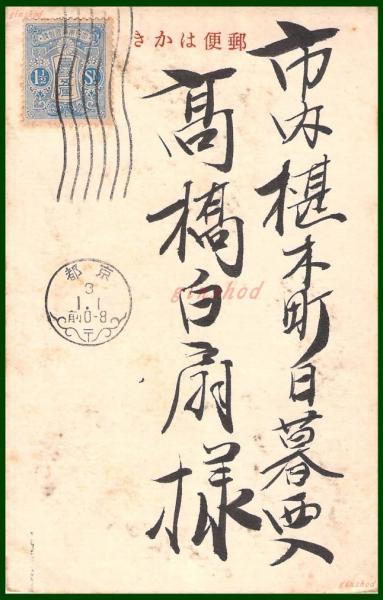 郵便はかき
市内椹木町日暮西入
高橋白扇様
1½ Sn.
京都
3
1.1
前0-8
〒
ginshod
ginshod
ginshod